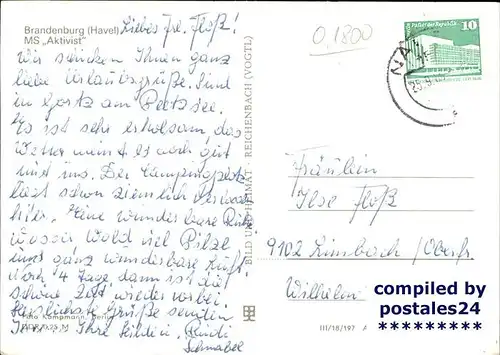 Brandenburg (Havel)
MS „Aktivist"
Liebes Frl. Floß!
Wir schicken Ihnen ganz
liebe Urlaubsgrüße. Sind
in Gortz am Beetzsee.
Es ist sehr erholsam, das
Wetter meint es noch gut
mit uns. Der Campingplatz
liegt schon ziemlich
hier. Eine wunderbare Ruhe
Wasser Wald viel Pilze
und ganz wunderbare Luft.
Noch 4 Tage dann ist die
schöne Zeit wieder vorbei
Herzlichste Grüße senden
Ihnen, Ihre Rudi
Schnabel
Foto Kampmann, Berlin
BILD UND HEIMAT REICHENBACH (VOGTL)
III/18/197 A
0,1800
Palast der Republik
10
NA
Fräulein
Ilse Floß
9102 Limbach/Oberfr.
Wilhelm
compiled by
postales24
*********